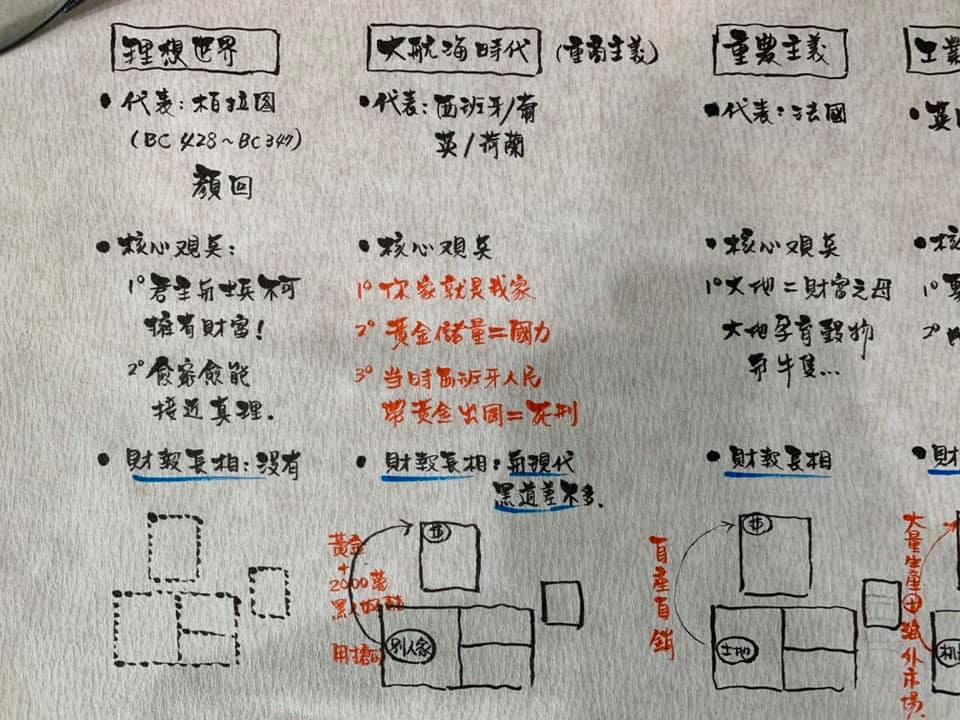 理想世界
• 代表：柏拉图
(BC 428~BC 347)
顏回
• 核心观点：
1° 君主与士兵不可
擁有財富！
2° 愈窮愈能
接近真理.
• 財報長相：没有
大航海時代 (重商主義)
• 代表：西班牙/葡
英/荷蘭
• 核心观点
1° 你家就是我家
2° 黃金儲量=國力
3° 当時西班牙人民
帶黃金出国=死刑
• 財報長相：与現代
黑道差不多.
黃金
+
2000萬
黑人奴隸
用搶的
別人家
重農主義
• 代表：法國
• 核心观点
1° 大地=財富之母
大地孕育穀物
和牛隻...
• 財報長相
自產自銷
土地
工業
• 英
• 核
1°
2°
• 財
大量生產
外市場.
机